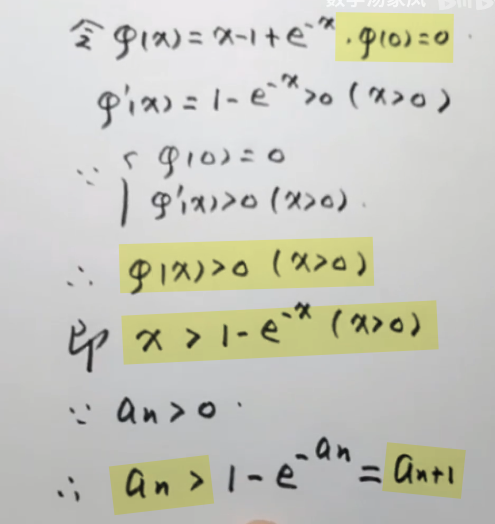 令 φ(x)=x-1+e^{-x}, φ(0)=0.
φ'(x)=1-e^{-x}>0 (x>0)
∵ { φ(0)=0
φ'(x)>0 (x>0).
∴ φ(x)>0 (x>0)
即 x>1-e^{-x} (x>0)
∵ an>0.
∴ an>1-e^{-an}=an+1